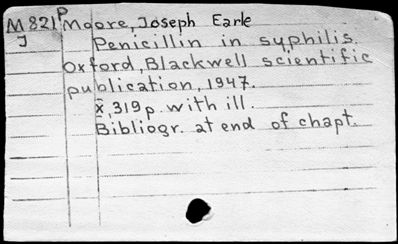 M821 P Moore, Joseph Earle
J Penicillin in syphilis.
Oxford, Blackwell scientific
publication, 1947.
x, 319 p. with ill.
Bibliogr. at end of chapt.